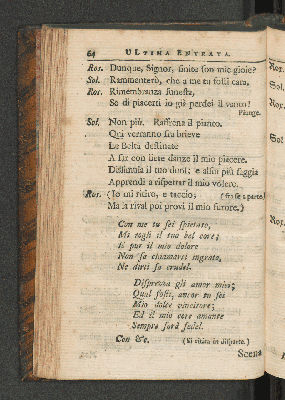 64 ULTIMA ENTRATA.
Ros. Dunque, Signor, finite son mie gioie?
Sol. Rammenterò, che a me tu fosti cara.
Ros. Rimembranza funesta,
Se di piacerti io già perdei il vanto!
Piange.
Sol. Non più. Rasserena il pianto.
Qui verranno fra brieve
Le Beltà destinate
A far con liete danze il mio piacere.
Dissimula il tuo duol; e assai più saggia
Apprendi a rispettar il mio volere.
Ros. (Io mi ritiro, e taccio; (fra se a parte)
Ma la rival poi provi il mio furore.)
Con me tu sei spietato,
Mi togli il tuo bel core;
E pur il mio dolore
Non sa chiamarti ingrato,
Ne dirti sa crudel.
Disprezza gli amor miei;
Qual fosti, ancor tu sei
Mio dolce vincitore;
Ed il mio core amante
Sempre sarà fedel.
Con &c. (Si ritira in disparte.)
Scena
Ros.
Sol
Ros.